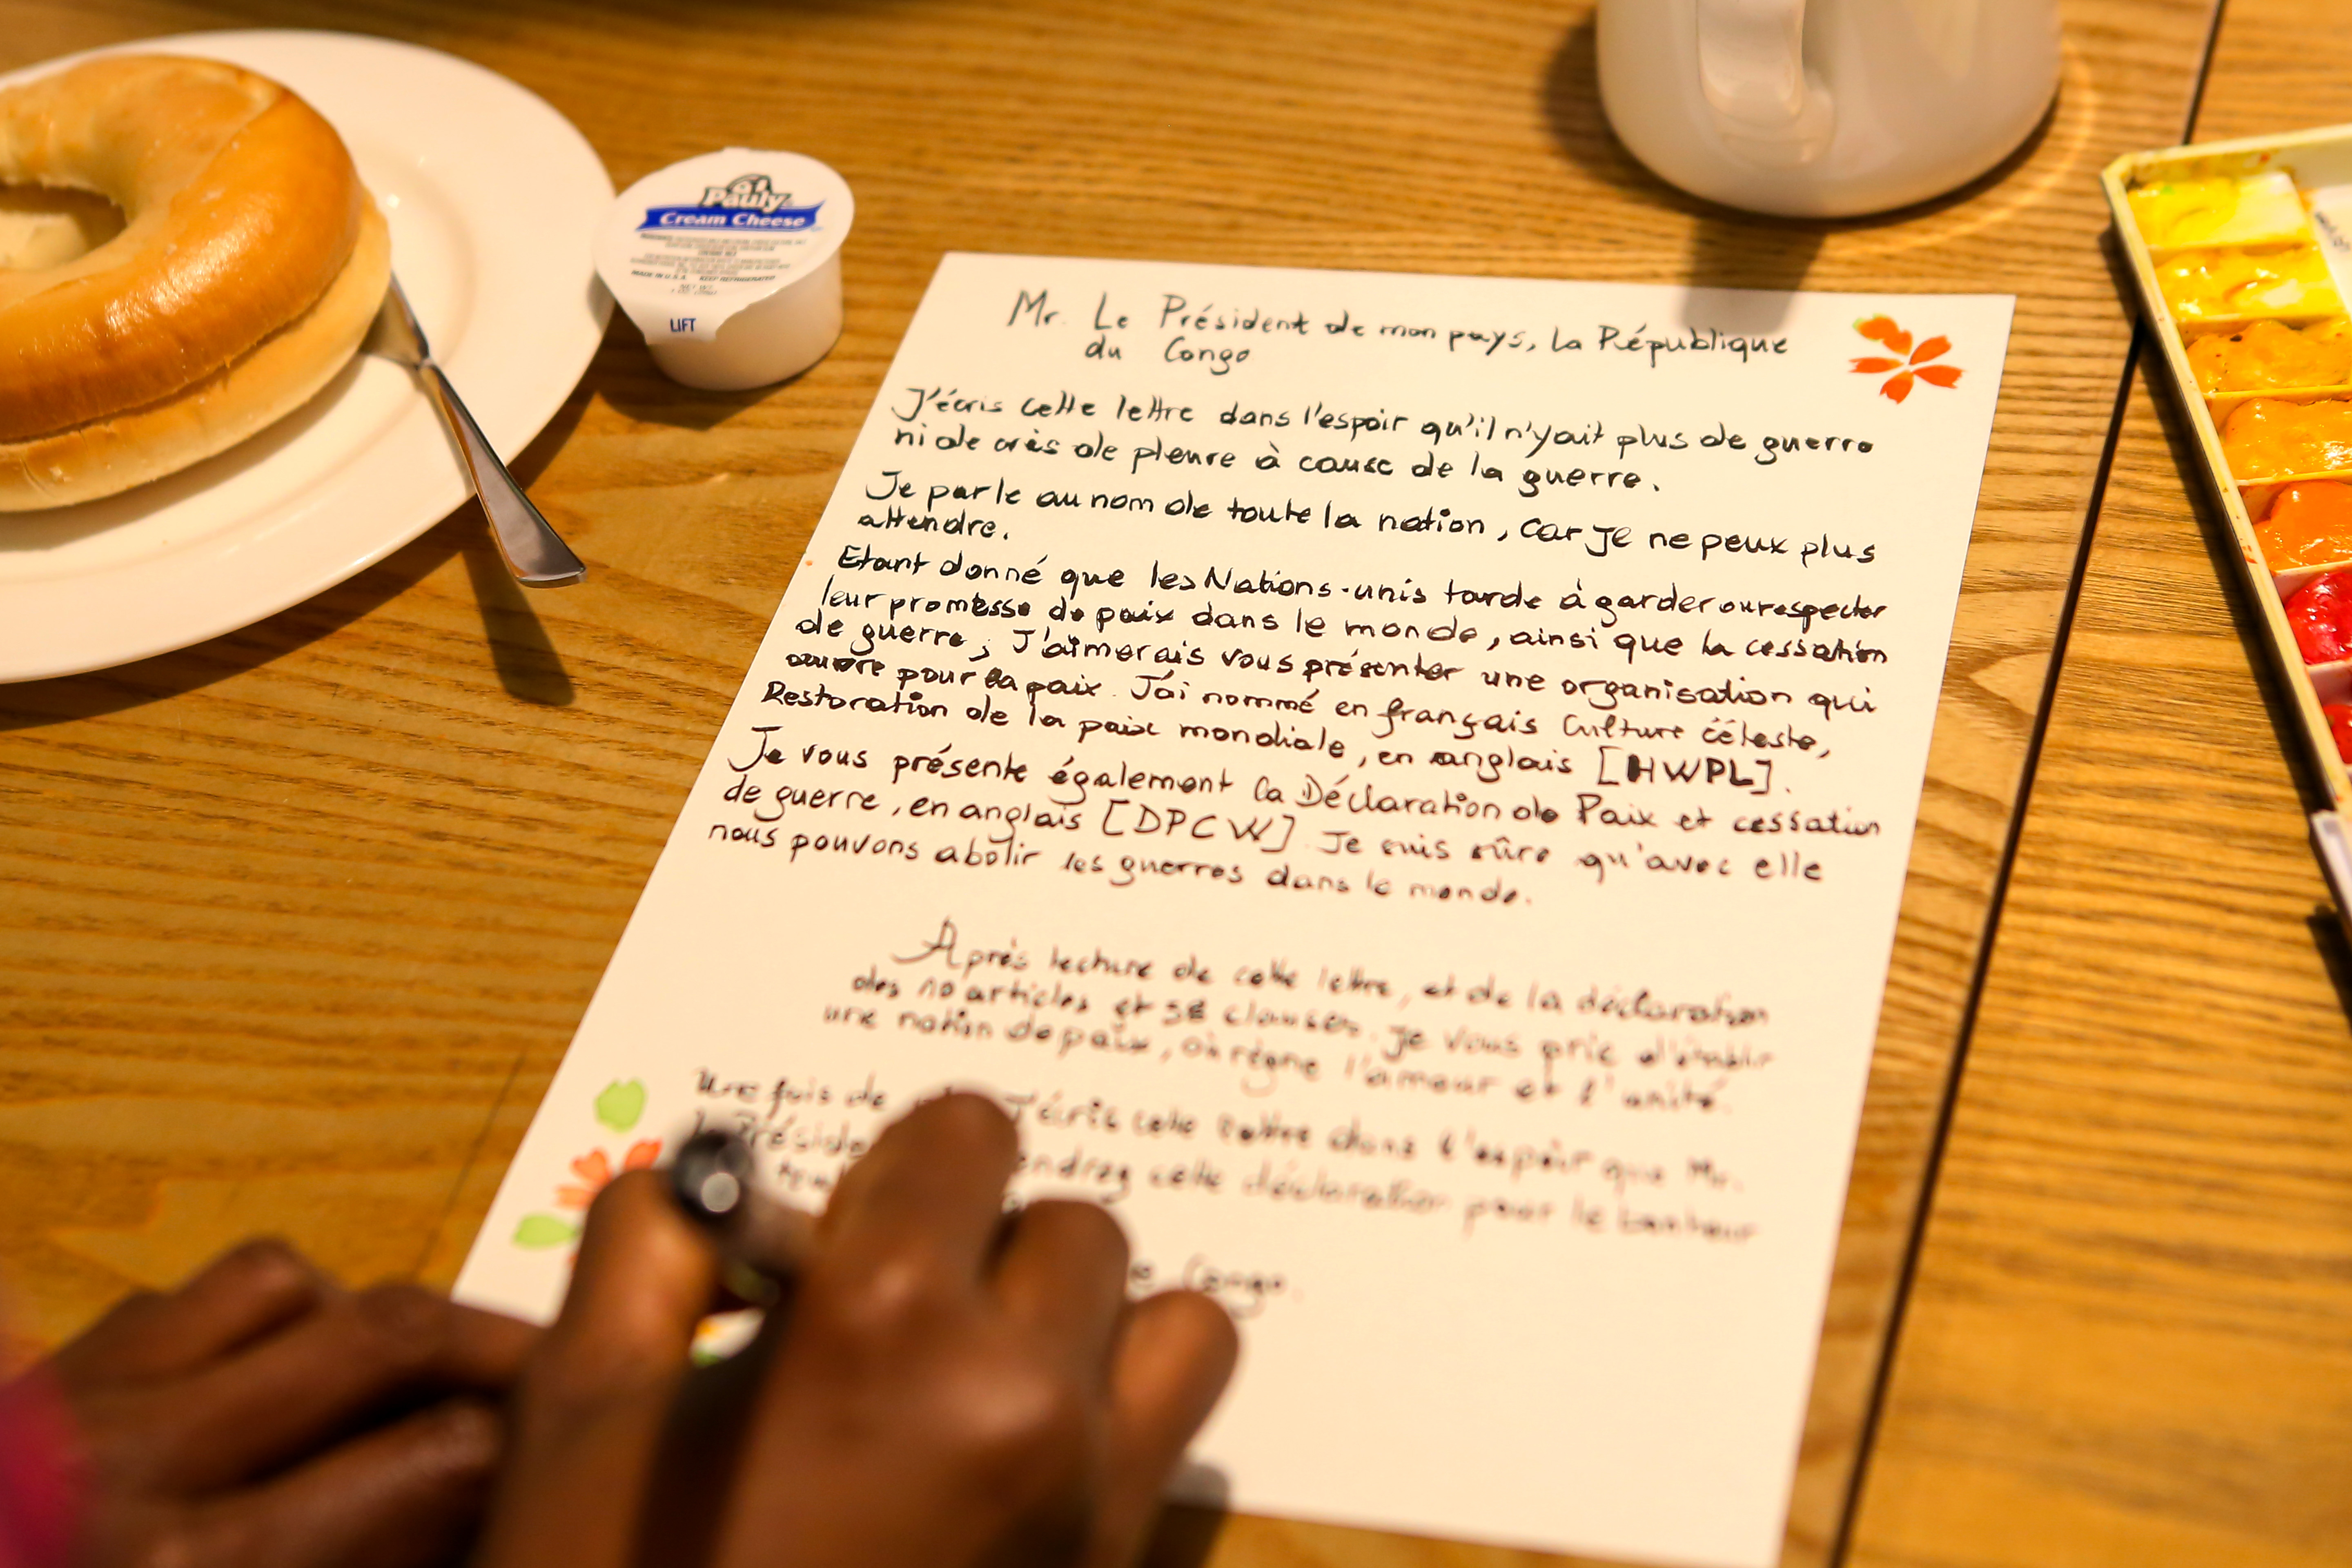 Pauly
Cream Cheese
MADE IN U.S.A. KEEP REFRIGERATED
LIFT
Mr. Le Président de mon pays, la République
du Congo
J'écris cette lettre dans l'espoir qu'il n'y ait plus de guerre
ni de cris de pleure à cause de la guerre.
Je parle au nom de toute la nation, car je ne peux plus
attendre.
Etant donné que les Nations-unis tarde à garder ou respecter
leur promesse de paix dans le monde, ainsi que la cessation
de guerre; J'aimerais vous présenter une organisation qui
œuvre pour la paix. J'ai nommé en français Culture céleste,
Restoration de la paix mondiale, en anglais [HWPL].
Je vous présente également la Déclaration de Paix et cessation
de guerre, en anglais [DPCW]. Je suis sûre qu'avec elle
nous pouvons abolir les guerres dans le monde.
Après lecture de cette lettre, et de la déclaration
des 10 articles et clauses. je vous prie d'établir
une nation de paix, où règne l'amour et l'unité.
Une fois de J'écris cette lettre dans l'espoir que Mr.
cette déclaration pour le bonheur
Congo.